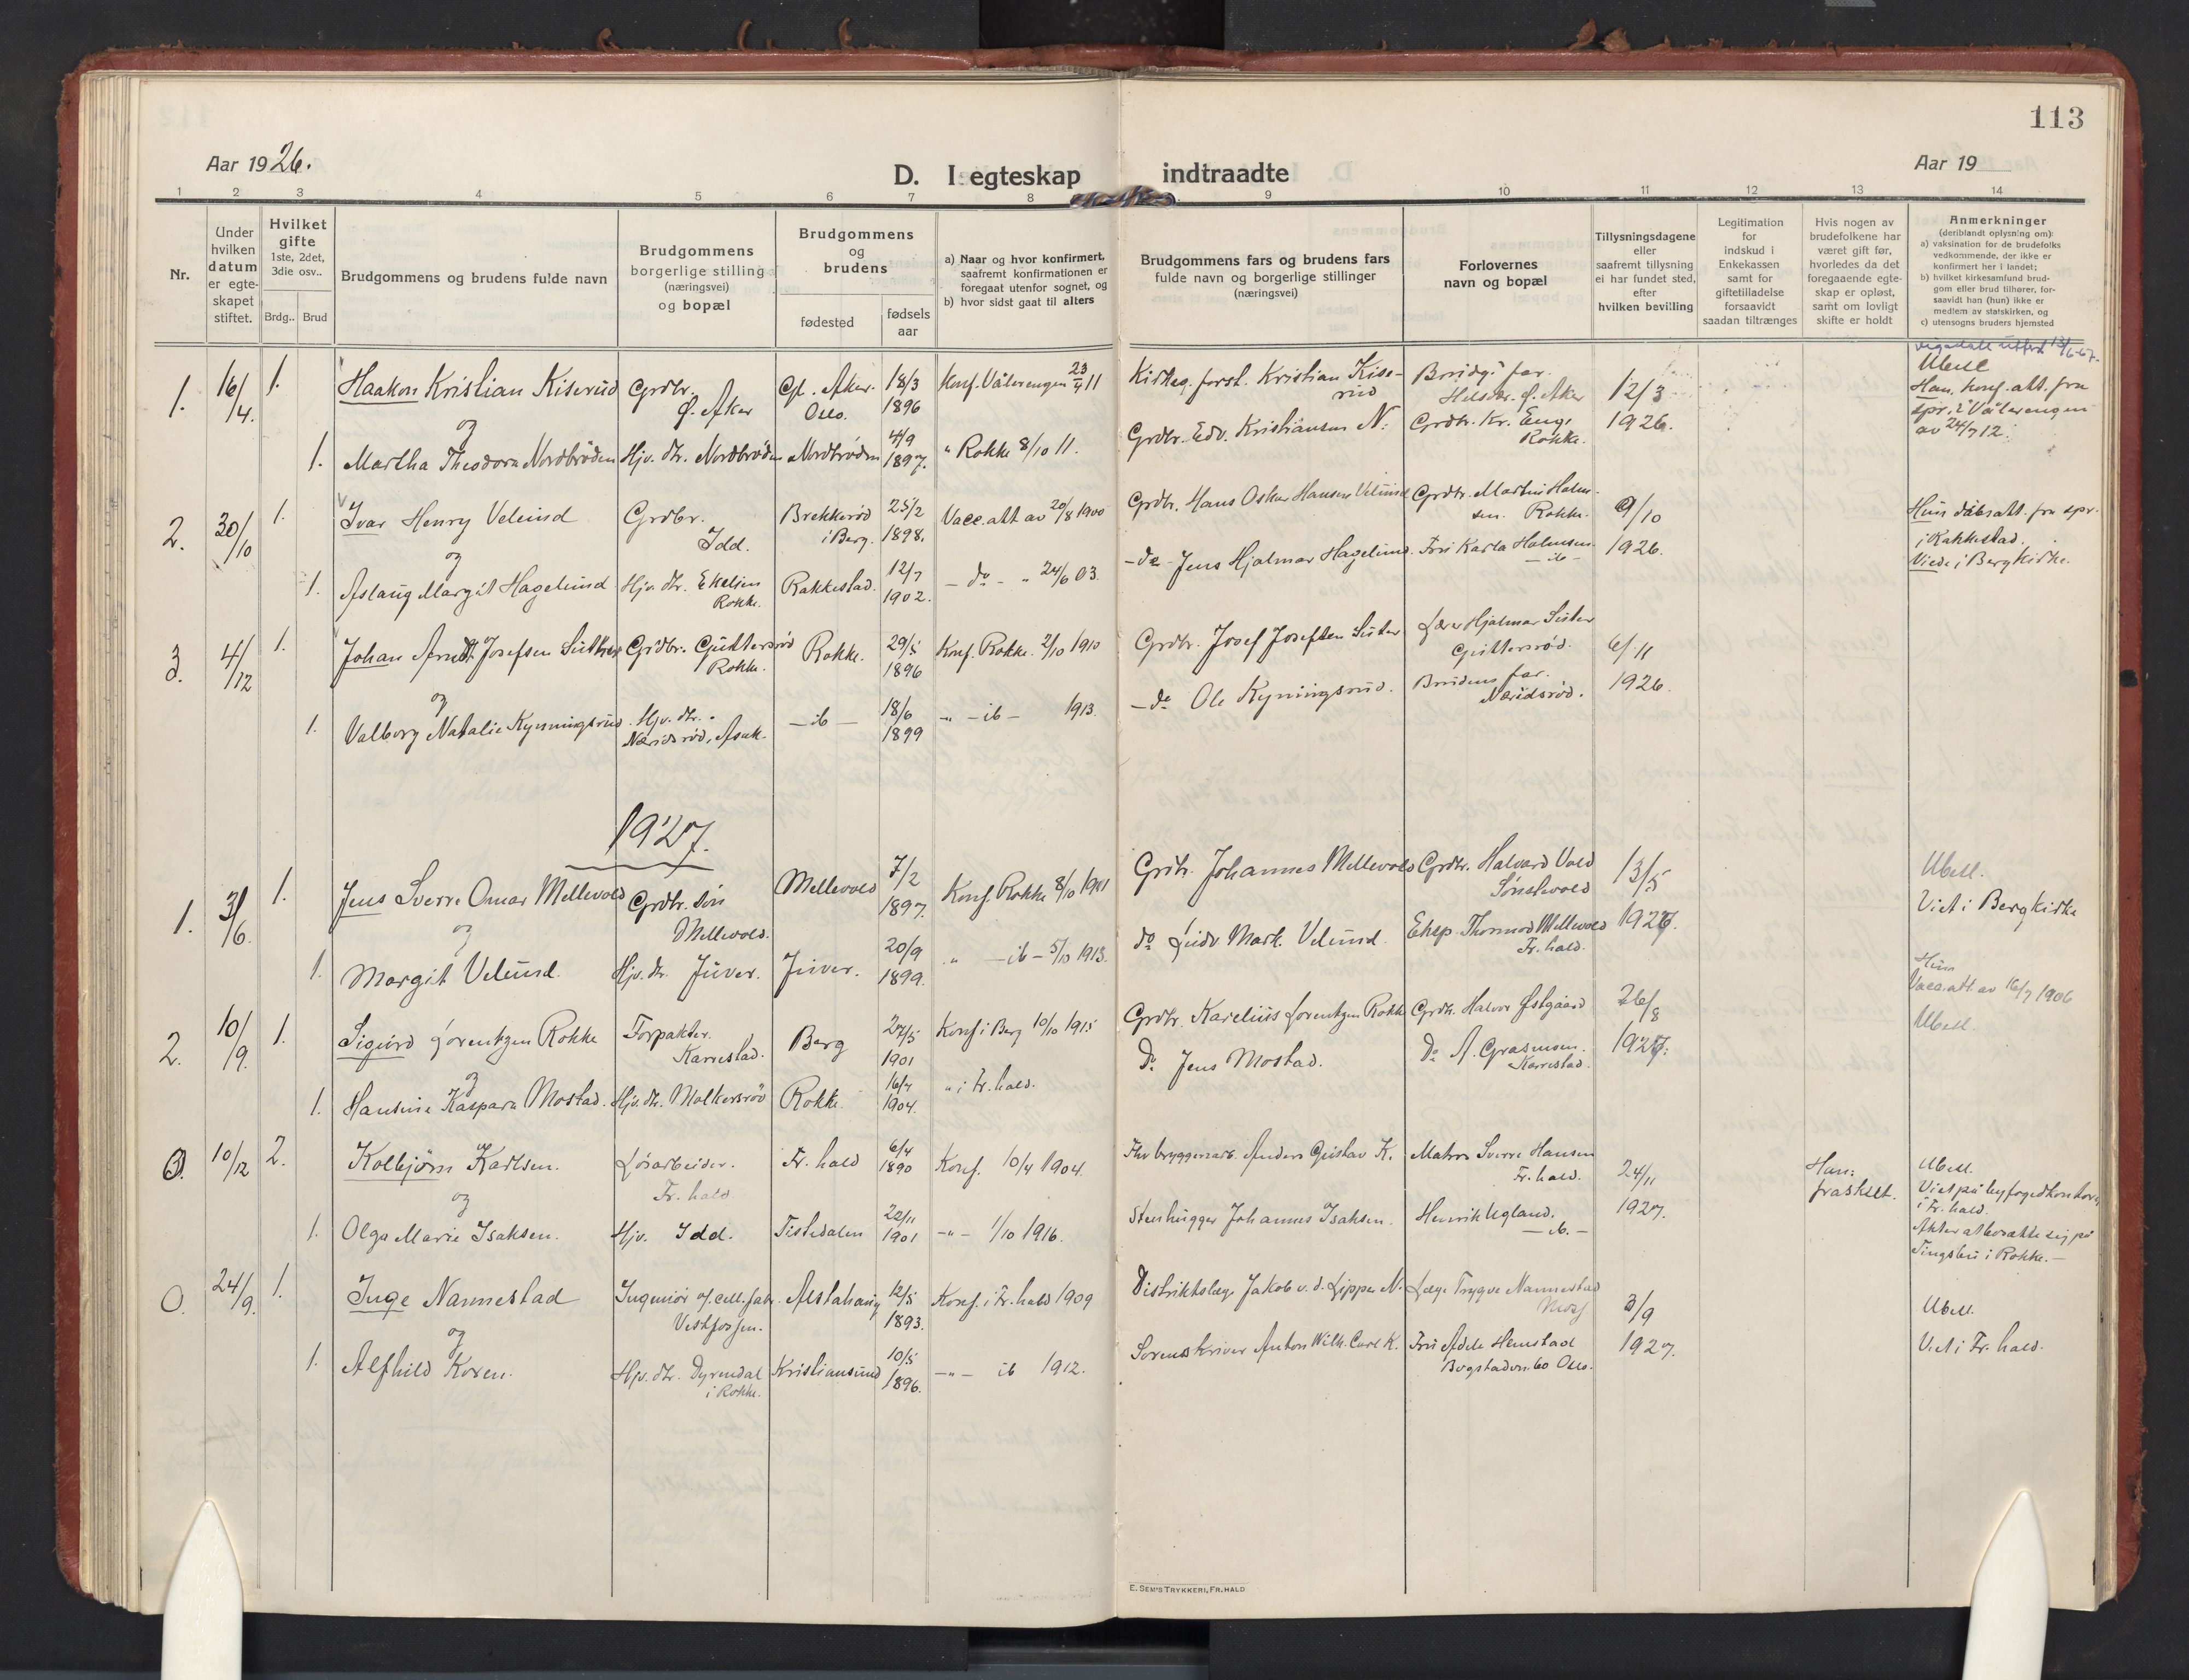 113
Aar 1926.
D. I egteskap indtraadte
Aar 19
1 2 3 4 5 6 7 8 9 10 11 12 13 14
Nr.
Under
hvilken
datum
er egte-
skapet
stiftet.
Hvilket
gifte
1ste, 2det,
3die osv..
Brdg.. Brud
Brudgommens og brudens fulde navn
Brudgommens
borgerlige stilling
(næringsvei)
og bopæl
Brudgommens
og
brudens
fødested
fødsels
aar
a) Naar og hvor konfirmert,
saafremt konfirmationen er
foregaat utenfor sognet, og
b) hvor sidst gaat til alters
Brudgommens fars og brudens fars
fulde navn og borgerlige stillinger
(næringsvei)
Forlovernes
navn og bopæl
Tillysningsdagene
eller
saafremt tillysning
ei har fundet sted,
efter
hvilken bevilling
Legitimation
for
indskud i
Enkekassen
samt for
giftetilladelse
forsaavidt
saadan tiltrænges
Hvis nogen av
brudefolkene har
været gift før,
hvorledes da det
foregaaende egte-
skap er opløst,
samt om lovligt
skifte er holdt
Anmerkninger
(deriblandt oplysning om):
a) vaksination for de brudefolks
vedkommende, der ikke er
konfirmert her i landet;
b) hvilket kirkesamfund brud-
gom eller brud tilhører, for-
saavidt han (hun) ikke er
medlem av statskirken, og
c) utensogns bruders hjemsted
1. 16/4. 1. Haakon Kristian Kiserud Grdbr. Ø. Aker 18/3 1896 Konf. Vålerengen 23/4 11 Kirkeg. forst. Kristian Kise-
rud Brudg.s far. Ø. Aker 12/3 1926. Ubesl.
Han, konf. att. fra
spr. i Vålerengen
av 24/7 12.
og
1. Martha Theodora Nordbrøden Hjv. dtr. Nordbrøden Nordbrøden 4/9 1897. " Rokke 8/10 11. Grdbr. Edv. Kristiansen N: Grdbr. Kr. Eng, Rokke.
2. 30/10 1. Ivar Henry Velund Grdbr. Idd. Brekkerød i Berg. 25/2 1898. Vacc. att av 20/8 1900 Grdbr. Hans Oskar Hansen Velund Grdbr. Martin Holm-
sen. Rokke. 9/10 1926. Hun dåbsatt. fra spr.
i Rakkestad.
Viede i Berg kirke.
og
1. Aslaug Margit Hagelund Hjv. dtr. Rokke. Rakkestad. 12/7 1902. - do - " 24/6 03. - do - Jens Hjalmar Hagelund. Fru Karla Holmsen - ib -
3. 4/12 1. Johan Arndt Josefsen Grdbr. Rokke. Rokke. 29/5 1896 Konf. Rokke. 2/10 1910 Grdbr. Josef Josefsen Lærer Hjalmar 6/11 1926.
og
1. Valborg Natalie Kynningsrud Hjv. dtr. Næridsrød, Asak. - ib - 18/6 1899 " - ib - 1913. - do Ole Kynningsrud. Brudens far. Næridsrød.
1927.
1. 3/6. 1. Jens Sverre Omar Mellevold Grdbr. søn Mellevold. Mellevold 7/2 1897. Konf. Rokke 8/10 1911 Grdbr. Johannes Mellevold Grdbr. Halvard Vold 13/5 1927. Ubesl.
Viet i Berg kirke
og
1. Margit Velund. Hjv. dtr. Juver. Juver. 20/9 1899. " - ib - 5/10 1913. do Ludv. Mark. Velund. Eksp. Thormod Mellevold Fr. hald.
Hun
Vacc. att. av 16/7 1906
2. 10/9. 1. Sigurd Lorentzen Rokke Forpakter. Karrestad. Berg 27/5 1901 Konf i Berg 10/10 1915 Grdbr. Karelius Lorentzen Rokke Grdbr. Halvor Østgaard 26/8 1927. Ubesl.
og
1. Hansine Kaspara Mostad. Hjv. dtr. Molkersrød Rokke 16/7 1904. " i Fr. hald. Do Jens Mostad. Do A. Grasmoen. Karrestad.
3. 10/12 2. Kolbjørn Karlsen. Løsarbeider. Fr. hald Fr. hald 6/4 1890 Konf. 10/4 1904. Fhv bryggeriarb. Anders Gustav K. Matros Sverre Hansen Fr. hald. 24/11 1927. Han:
fraskilt. Ubesl.
Viet på byfogedkontoret
i Fr. hald.
Akter at bosætte sig på
Tingsbu i Rokke. -
og
1. Olga Marie Isaksen. Hjv. Idd. Tistedalen 22/11 1901 - " - 1/10 1916. Stenhugger Johannes Isaksen. Henrik Ugland. - ib. -
0. 24/9. 1. Inge Nannestad Ingeniør v/ cell. fabr. Vestfossen. Alstahaug 12/5 1893. Konf. i Fr. hald 1909 Distriktslæge Jakob v. d. Lippe N. Læge Trygve Nannestad Moss 3/9 1927. Ubesl.
Viet i Fr. hald.
og
1. Alfhild Koren. Hjv. dtr. Dyrendal i Rokke. Kristiansund 10/5 1896. - " - ib 1912. Sorenskriver Anton Wilh. Carl K. Fru Adele Henstad Bogstadvn. 60 Oslo.
E. SEM'S TRYKKERI, FR.HALD